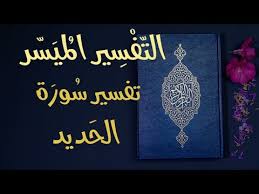 التَّفْسِير المُيَسَّر
تفسير سُورَة
الحَديد